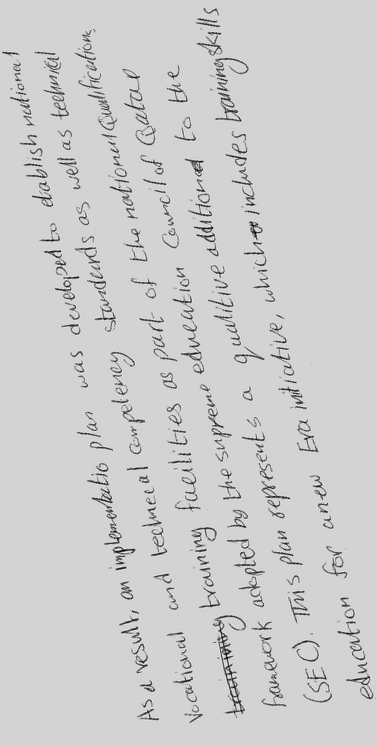 As a result, an implementatio plan was developed to establish national
vocational and technical competency standards as well as technical
training facilities as part of the national Qualifications
framework adopted by the supreme education Council of Qatar
(SEC). This plan represents a qualitive additional to the
education for anew Era initiative, which includes training skills